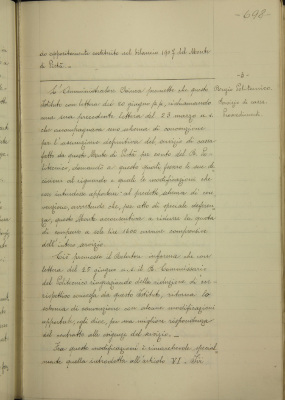 -698-
do rispettivamente instituito nel bilancio 1907 del Monte
di Pietà. -
- 6 -
L'Amministratore Chiesa premette che questo
Istituto con lettera del 20 giugno p.p., richiamando
una sua precedente lettera del 28 marzo u.s.
che accompagnava uno schema di convenzione
per l'assunzione definitiva del servizio di cassa
fatto da questo Monte di Pietà per conto del
domandò a questo quali fossero le sue
al riguardo e quali le modificazioni che
esso intendesse apportare al predetto schema di con
venzione, avvertendo che, per atto di speciale deferen
za, questo Monte acconsentiva a ridurre la quota
di compenso a sole lire 1800 annue comprensive
dell'
Ciò premesso il Relatore informa che con
lettera del 27 giugno u.s. il R. Commissario
del Policlinico ringraziando della riduzione
concessa da questo Istituto, ritorna lo
schema di convenzione con alcune modificazioni
apportate, egli dice, per una migliore rispondenza
del medesimo alle esigenze del servizio. -
Fra queste modificazioni è rimarchevole special
mente quella introdotta all'articolo VI. -
Servizio di cassa